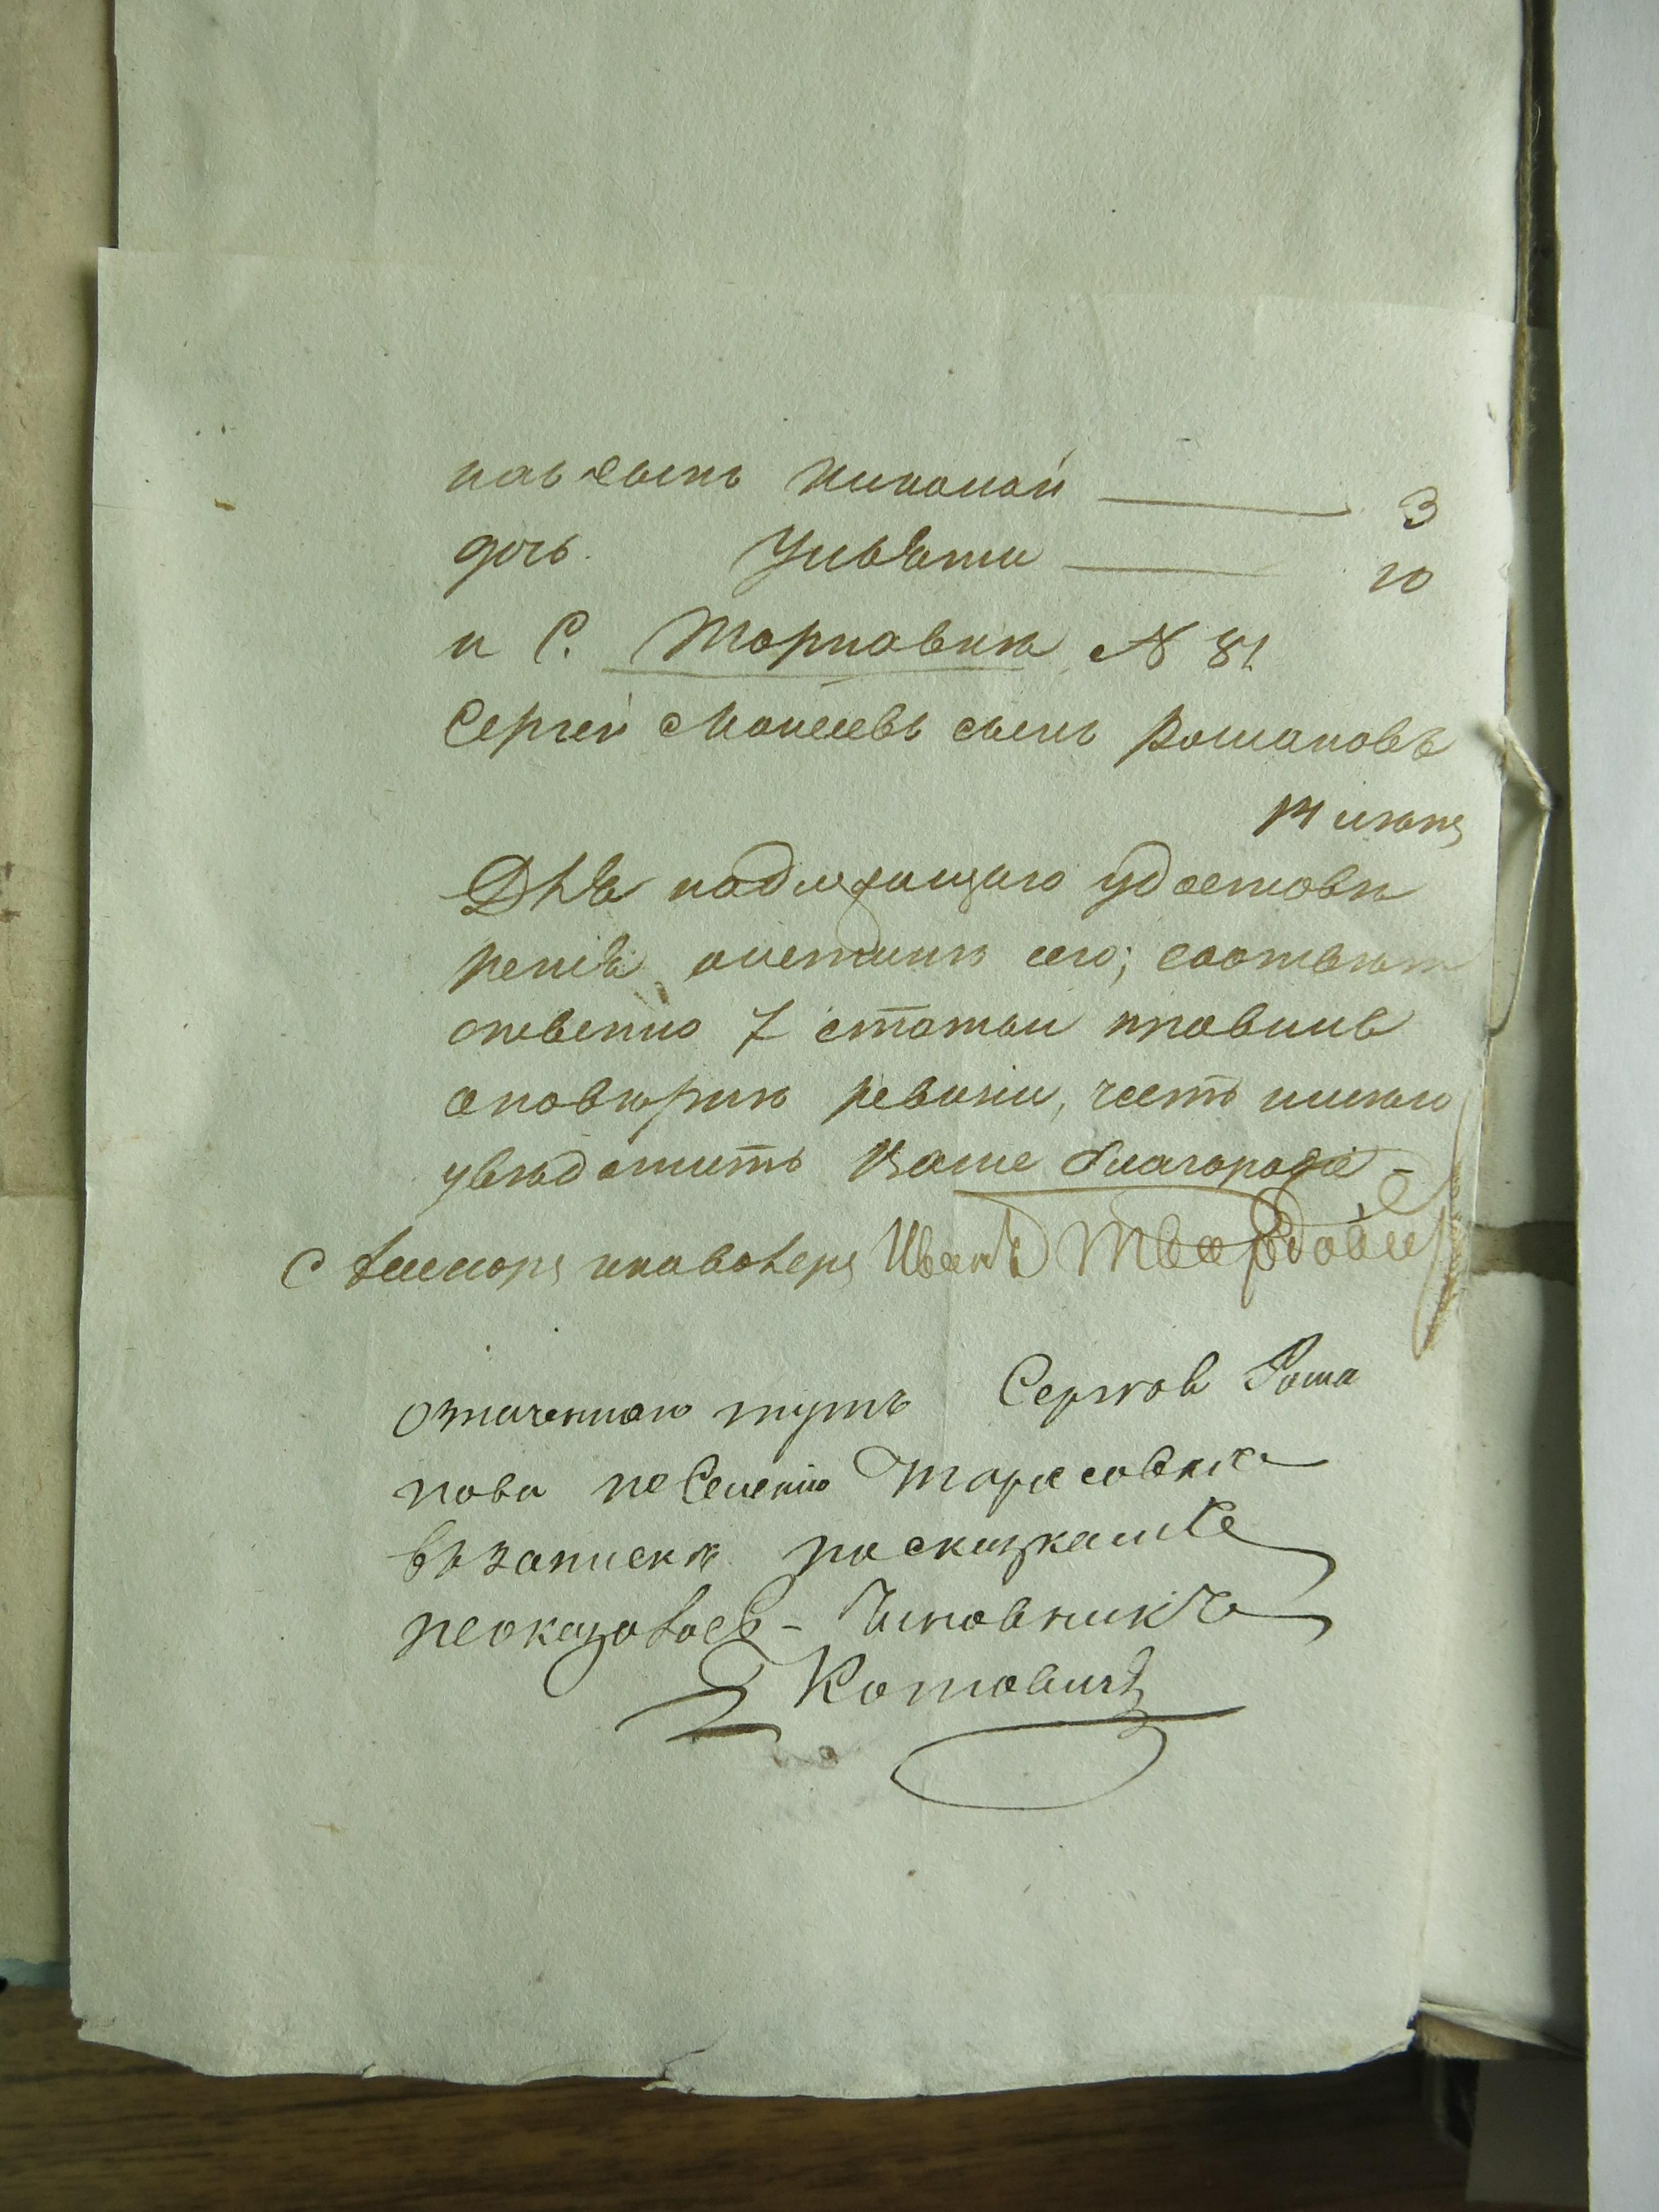 сынъ Николай 3
дочь Ульяти 10
и С. Тарнавки № 81
Сергей Моисеевъ сынъ Романовъ
Для надлежащаго удостовѣ
ренія о сего; соотвѣт
ственно 7 статьи правилъ
о повѣркѣ ревизіи, честь имѣю
увѣдомить Ваше благородіе
Иванъ Твердо
означеннаго тутъ Сергѣя Рома
нова по селенію Тарасовки
въ записки
неоказалось - Чиновникъ
Котовичъ